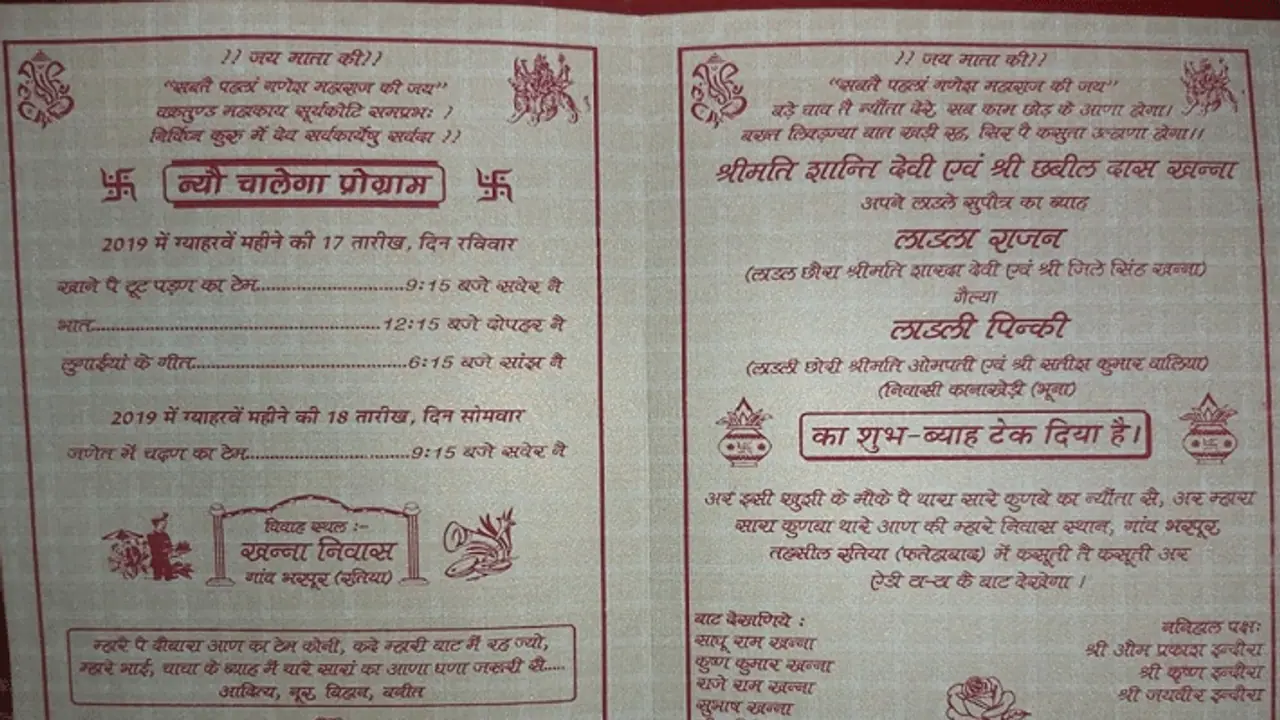 ?? जय माता की??
“सबतै पहलां गणेश महाराज की जय”
वक्रतुण्ड महाकाय सूर्यकोटि समप्रभः ?
निर्विघ्न कुरु में देव सर्वकार्येषु सर्वदा ??
न्यौ चालेगा प्रोग्राम
2019 में ग्याहरवें महीने की 17 तारीख, दिन रविवार
खाने पै टूट पड़ण का टेम..............................9:15 बजे सवेर नै
भात............................................................12:15 बजे दोपहर नै
लुगाईयां के गीत.............................................6:15 बजे सांझ नै
2019 में ग्याहरवें महीने की 18 तारीख, दिन सोमवार
जणेत में चढ़ण का टेम..................................9:15 बजे सवेर नै
विवाह स्थल :-
खन्ना निवास
गांव भरपूर (रतिया)
म्हारै पै दौबारा आण का टेम कोनी, कदे म्हारी बाट मैं रह ज्यो,
म्हारे भाई, चाचा के ब्याह मैं थारे सारां का आणा घणा जरूरी सै.....
आदित्य, नूर, विहान, वनीत
?? जय माता की??
“सबतै पहलां गणेश महाराज की जय”
बड़े चाव तै न्यौंता देरे, सब काम छोड़ के आणा होगा।
बख्त लिकड़ज्या बात खड़ी रह, सिर पै कसुता उल्हाणा होगा।।
श्रीमति शान्ति देवी एवं श्री छबील दास खन्ना
अपने लाडले सुपौत्र का ब्याह
लाडला राजन
(लाडल छौरा श्रीमति शारदा देवी एवं श्री जिले सिंह खन्ना)
गैल्या
लाडली पिन्की
(लाडली छोरी श्रीमति ओमपती एवं श्री सतीश कुमार वालिया)
(निवासी कानाखेड़ी (भूना)
का शुभ-ब्याह टेक दिया है।
अर इसी खुशी के मौके पै थारा सारे कुणबे का न्यौंता सै, अर म्हारा
सारा कुणबा थारे आण की म्हारे निवास स्थान, गांव भरपूर,
तहसील रतिया (फतेहाबाद) में कसूती तै कसूती अर
ऐडी ठा-ठा कै बाट देखेगा ।
बाट देखणिये :
साधू राम खन्ना
कृष्ण कुमार खन्ना
राजे राम खन्ना
सुभाष खन्ना
ननिहाल पक्षः
श्री औम प्रकाश इन्दौरा
श्री कृष्ण इन्दौरा
श्री जयवीर इन्दौरा